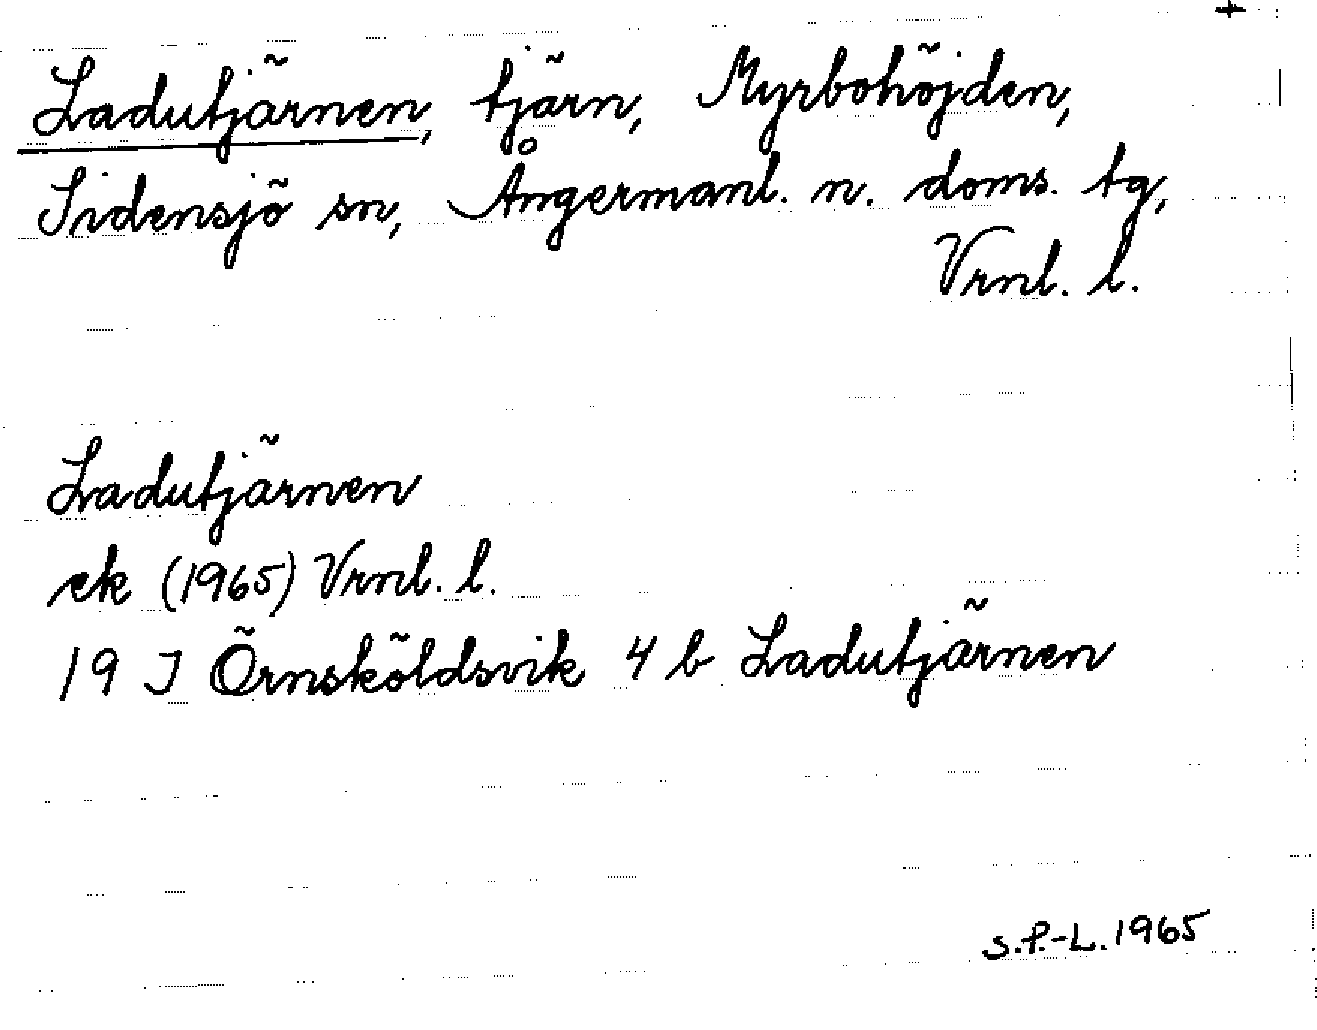 +
Ladutjärnen, tjärn, Myrbohöjden,
Sidensjö sn, Ångermanl. n. doms. tg,
Vrnl. l.
Ladutjärnen
ek (1965) Vrnl. l.
19 J Örnsköldsvik 4 b Ladutjärnen
S.P.-L. 1965